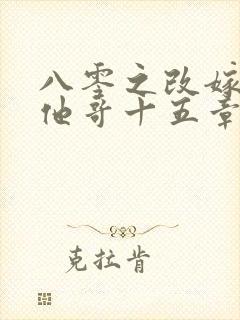 八零之改嫁
他哥十五章
克拉肯